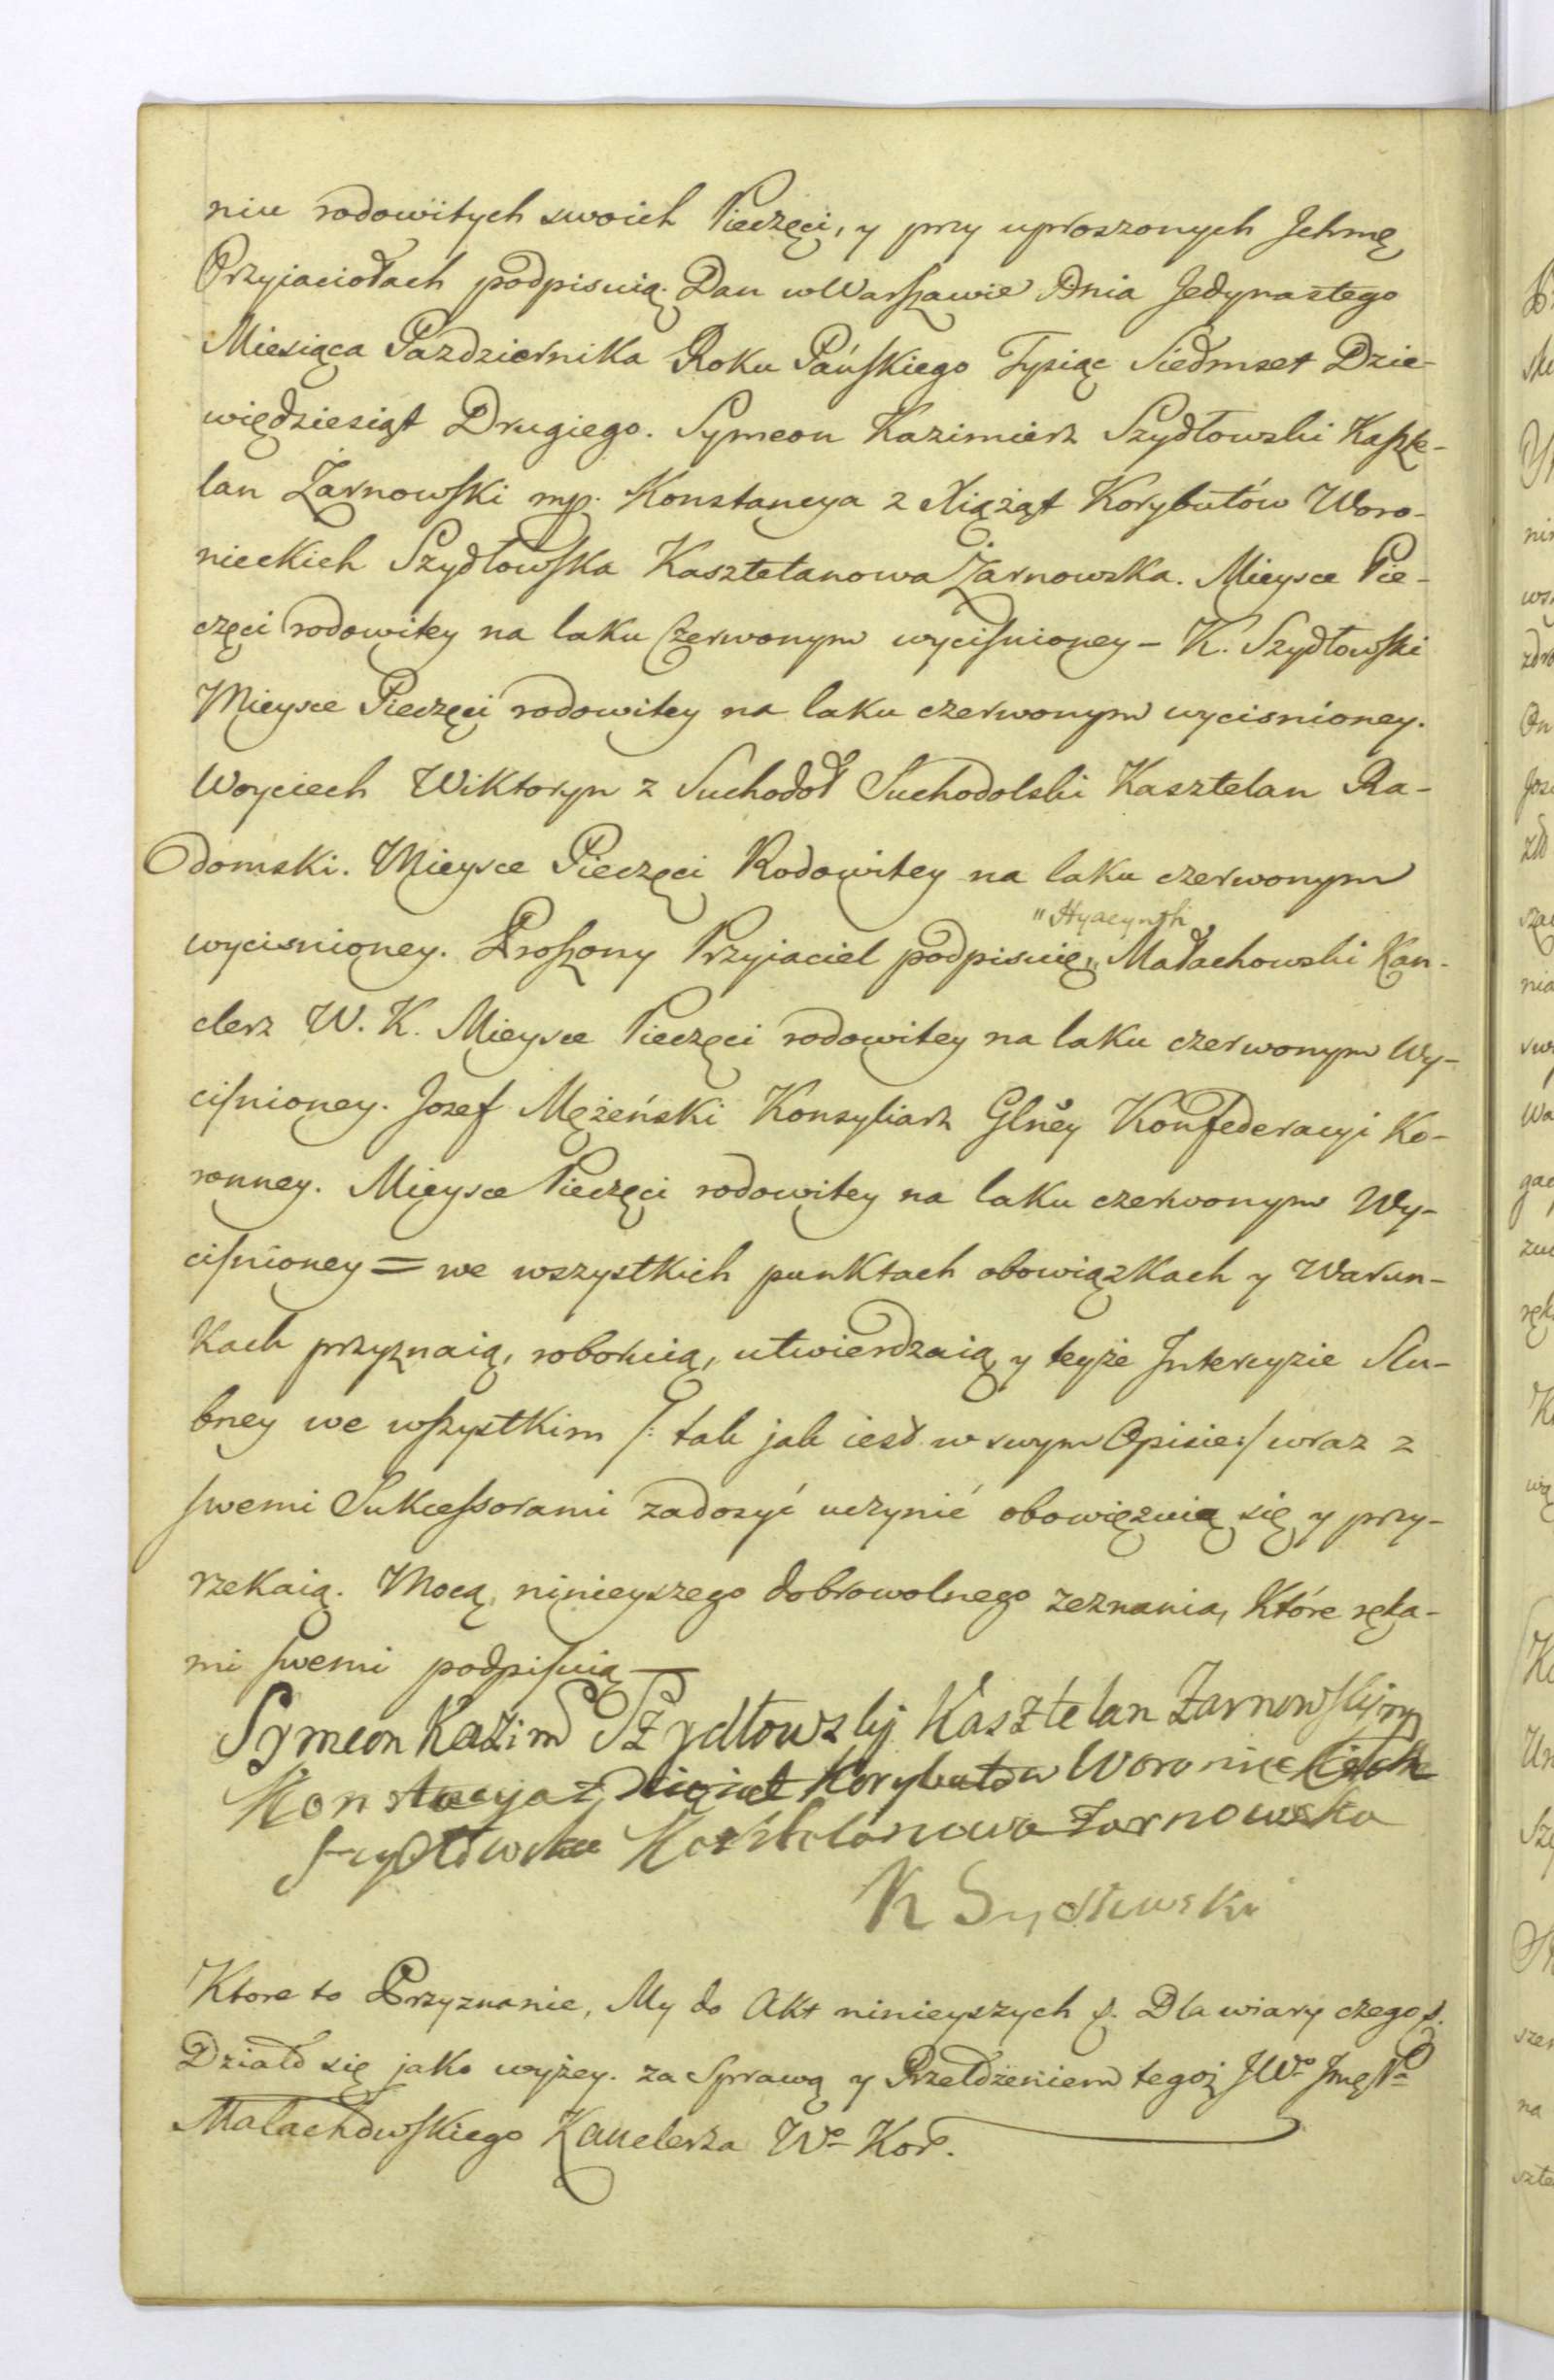 niu rodowitych swoich Pieczęci, y przy uproszonych Jchmę
Przyjaciołach podpisuią. Dan w Warszawie Dnia Jedynastego
Miesiąca Pazdziernika Roku Pańskiego Tysiąc Siedmset Dzie-
więdziesiąt Drugiego. Symeon Kazimierz Szydłowski Kaszte-
lan Żarnowski mp. Konstancya z Xiążąt Korybutów Woro-
nieckich Szydłowska Kasztelanowa Żarnowska. Mieysce Pie-
częci rodowitey na laku Czerwonym wycisnioney - K. Szydłowski
Mieysce Pieczęci rodowitey na laku czerwonym wycisnioney.
Woyciech Wiktoryn z Suchodoł Suchodolski Kasztelan Ra-
domski. Mieysce Pieczęci Rodowitey na laku czerwonym
"Hyacynth
wycisnioney. Proszony Przyjaciel podpisuię,, Małachowski Kan-
clerz W. K. Mieysce Pieczęci rodowitey na laku czerwonym Wy-
cisnioney. Jozef Mężeński Konsyliarz Glney Konfederacyi Ko-
ronney. Mieysce Pieczęci rodowitey na laku czerwonym Wy-
cisnioney = we wszystkich punktach obowiązkach y Warun-
kach przyznaią, roboruią, utwierdzaią y teyże Intercyzie Slu-
bney we wszystkim /: tak jak iest w swym Opisie :/ wraz z
swemi Sukcessorami zadosyć uczynić obowięzuią się y przy-
rzekaią. Mocą ninieyszego dobrowolnego zeznania, które ręka-
mi swemi podpisuią —
Symeon Kazim Szydłowskj Kasztelan Zarnowskj mp
Konstancya z Xiążąt Korybutów Woronieckich
Szydłowska Kasztelanowa Zarnowska
K Szydłowski
Ktore to Przyznanie, My do Akt ninieyszych p. Dla wiary czego p.
Działo się jako wyżey. za Sprawą y Przełożeniem tegoż JWo Jmę Pa
Małachowskiego Kanclerza Wo Kor.